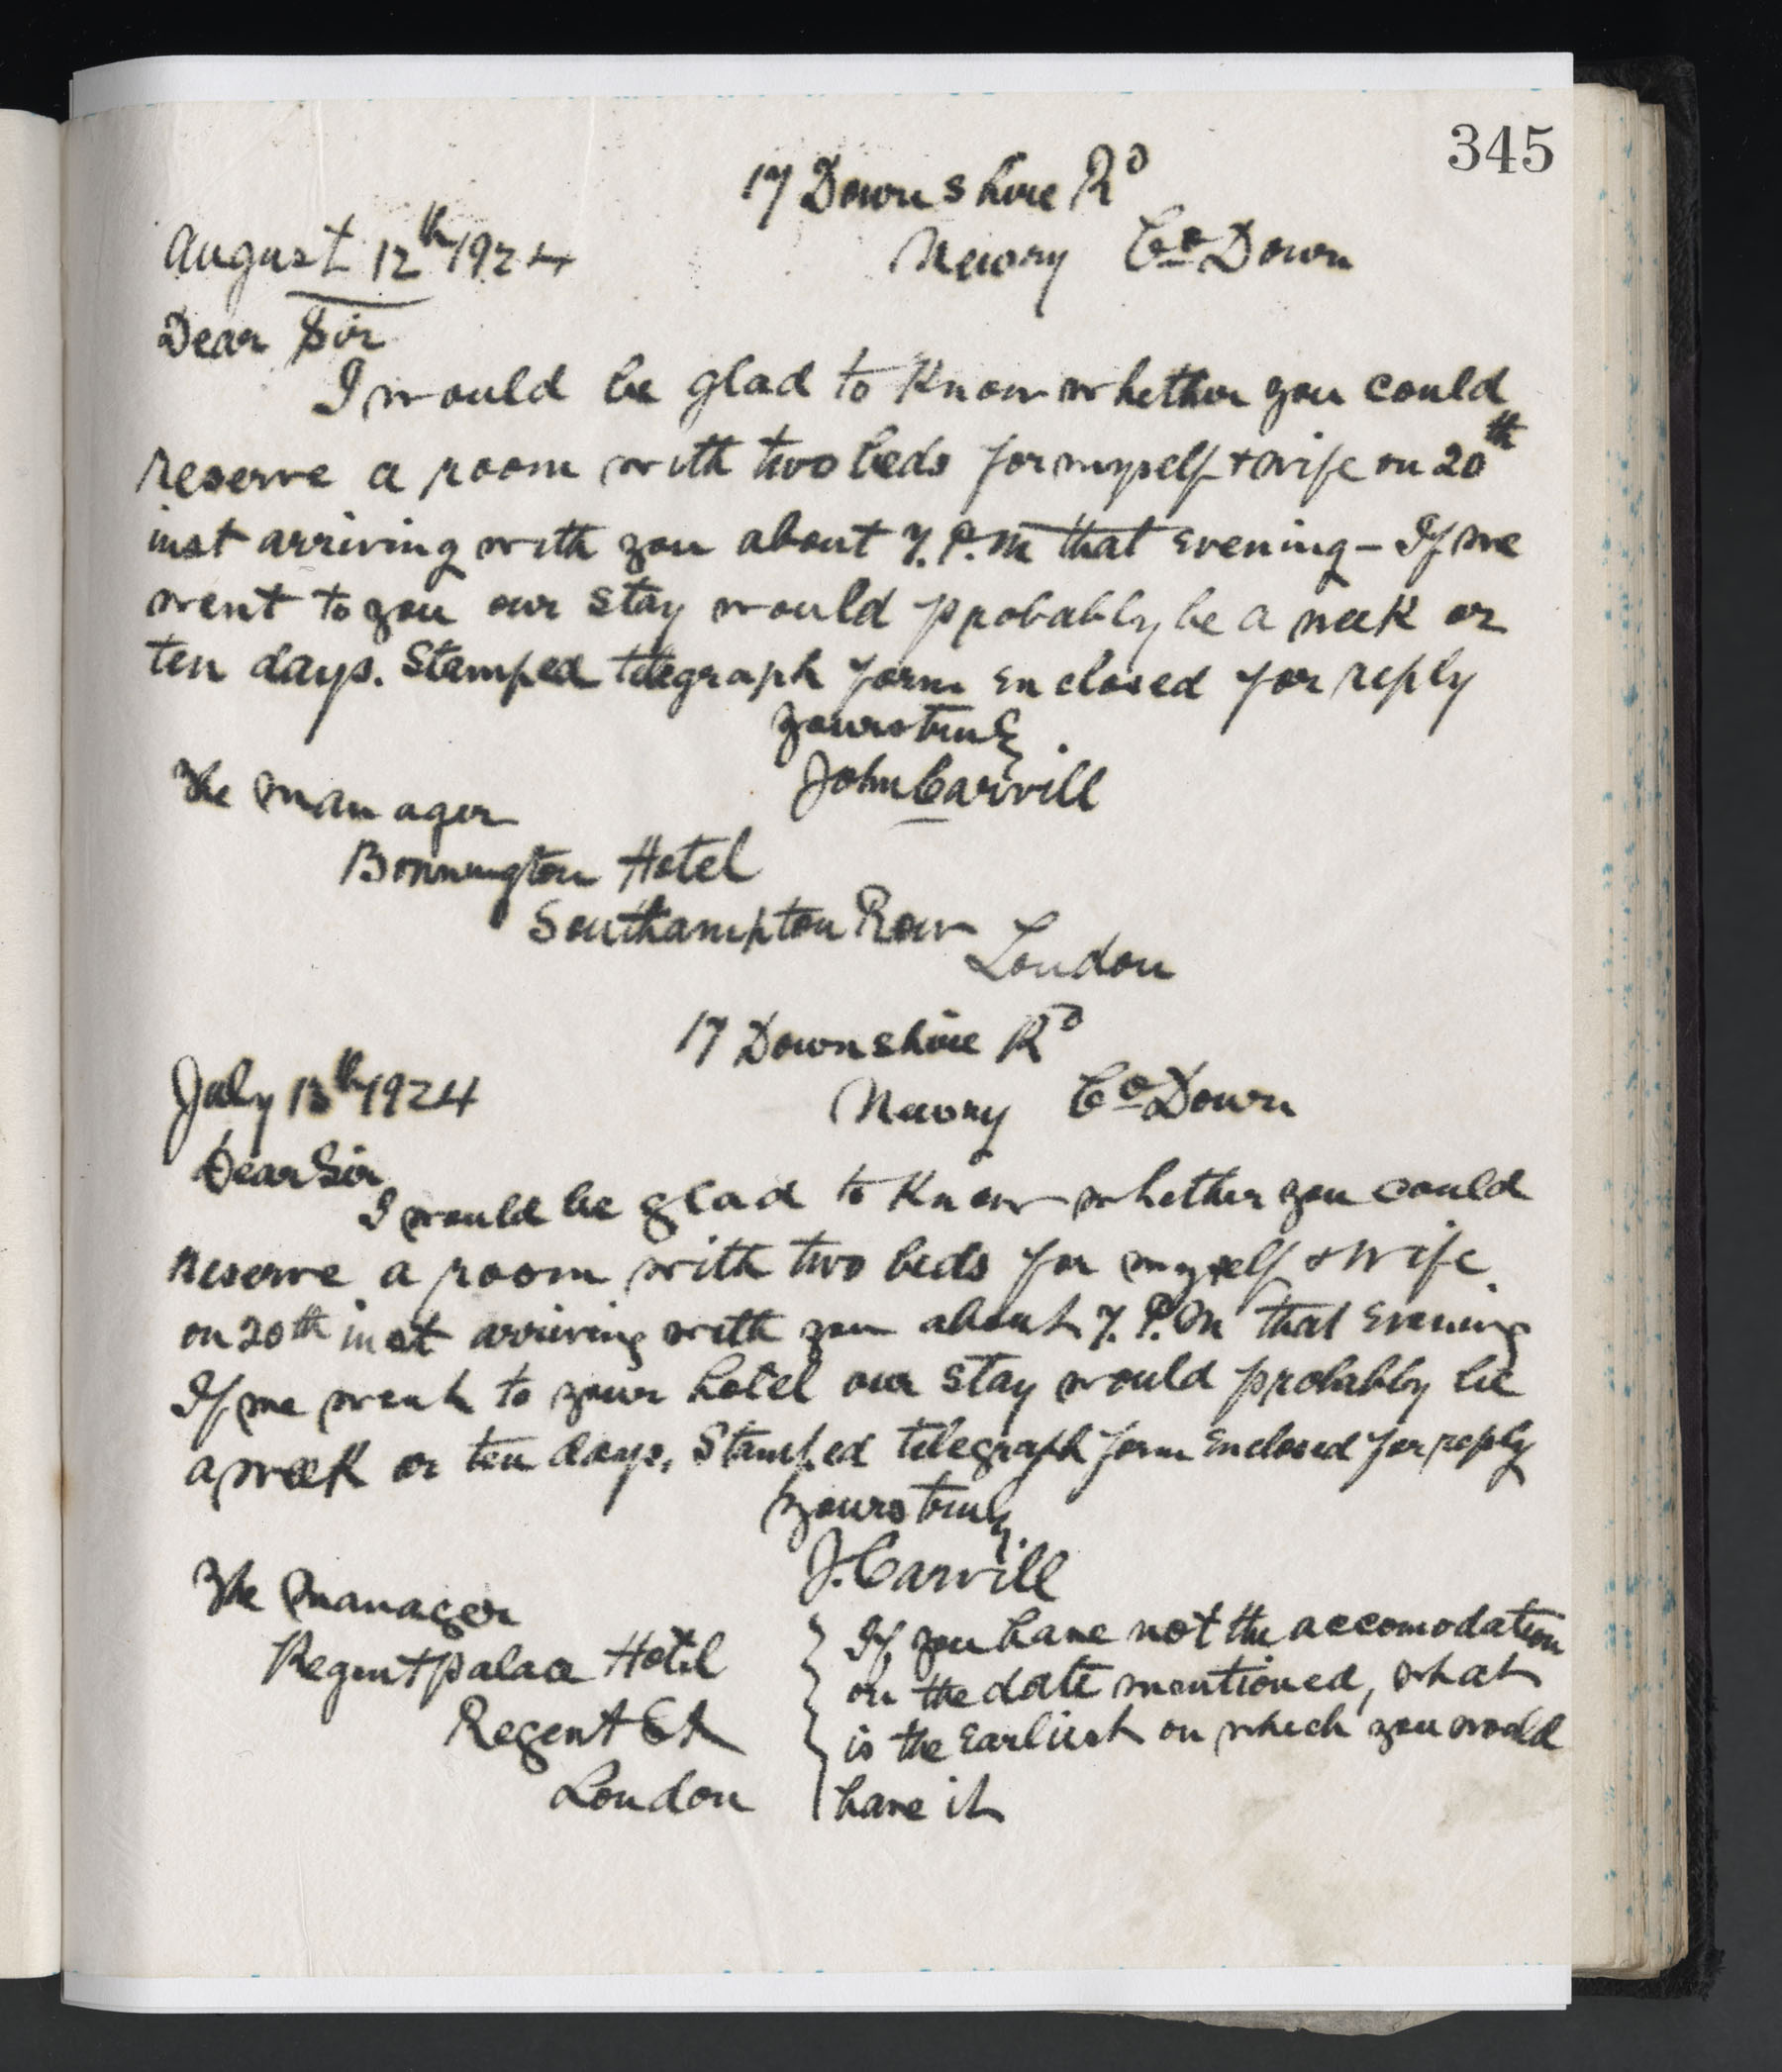 345
17 Downshire Rd
August 12th 1924 Newry Co Down
Dear Sir
I would be glad to Know whether you could
reserve a room with two beds for myself & wife on 20th
inst arriving with you about 7. P.M that Evening - If we
went to you our stay would probably be a week or
ten days. Stamped telegraph form Enclosed for reply
yours truly
John Carvill
The Manager
Bonnington Hotel
Southampton Row
London
17 Downshire Rd
July 13th 1924 Newry Co Down
Dear Sir
I would be glad to Know whether you could
reserve a room with two beds for myself & Wife
on 20th inst arriving with you about 7. P.M that Evening
If we went to your hotel our stay would probably be
a week or ten days, Stamped telegraph form Enclosed for reply
yours truly
J. Carvill
The Manager
Regent Palace Hotel
Regent St
London
If you have not the accomodation
on the date mentioned, what
is the Earliest on which you would
have it